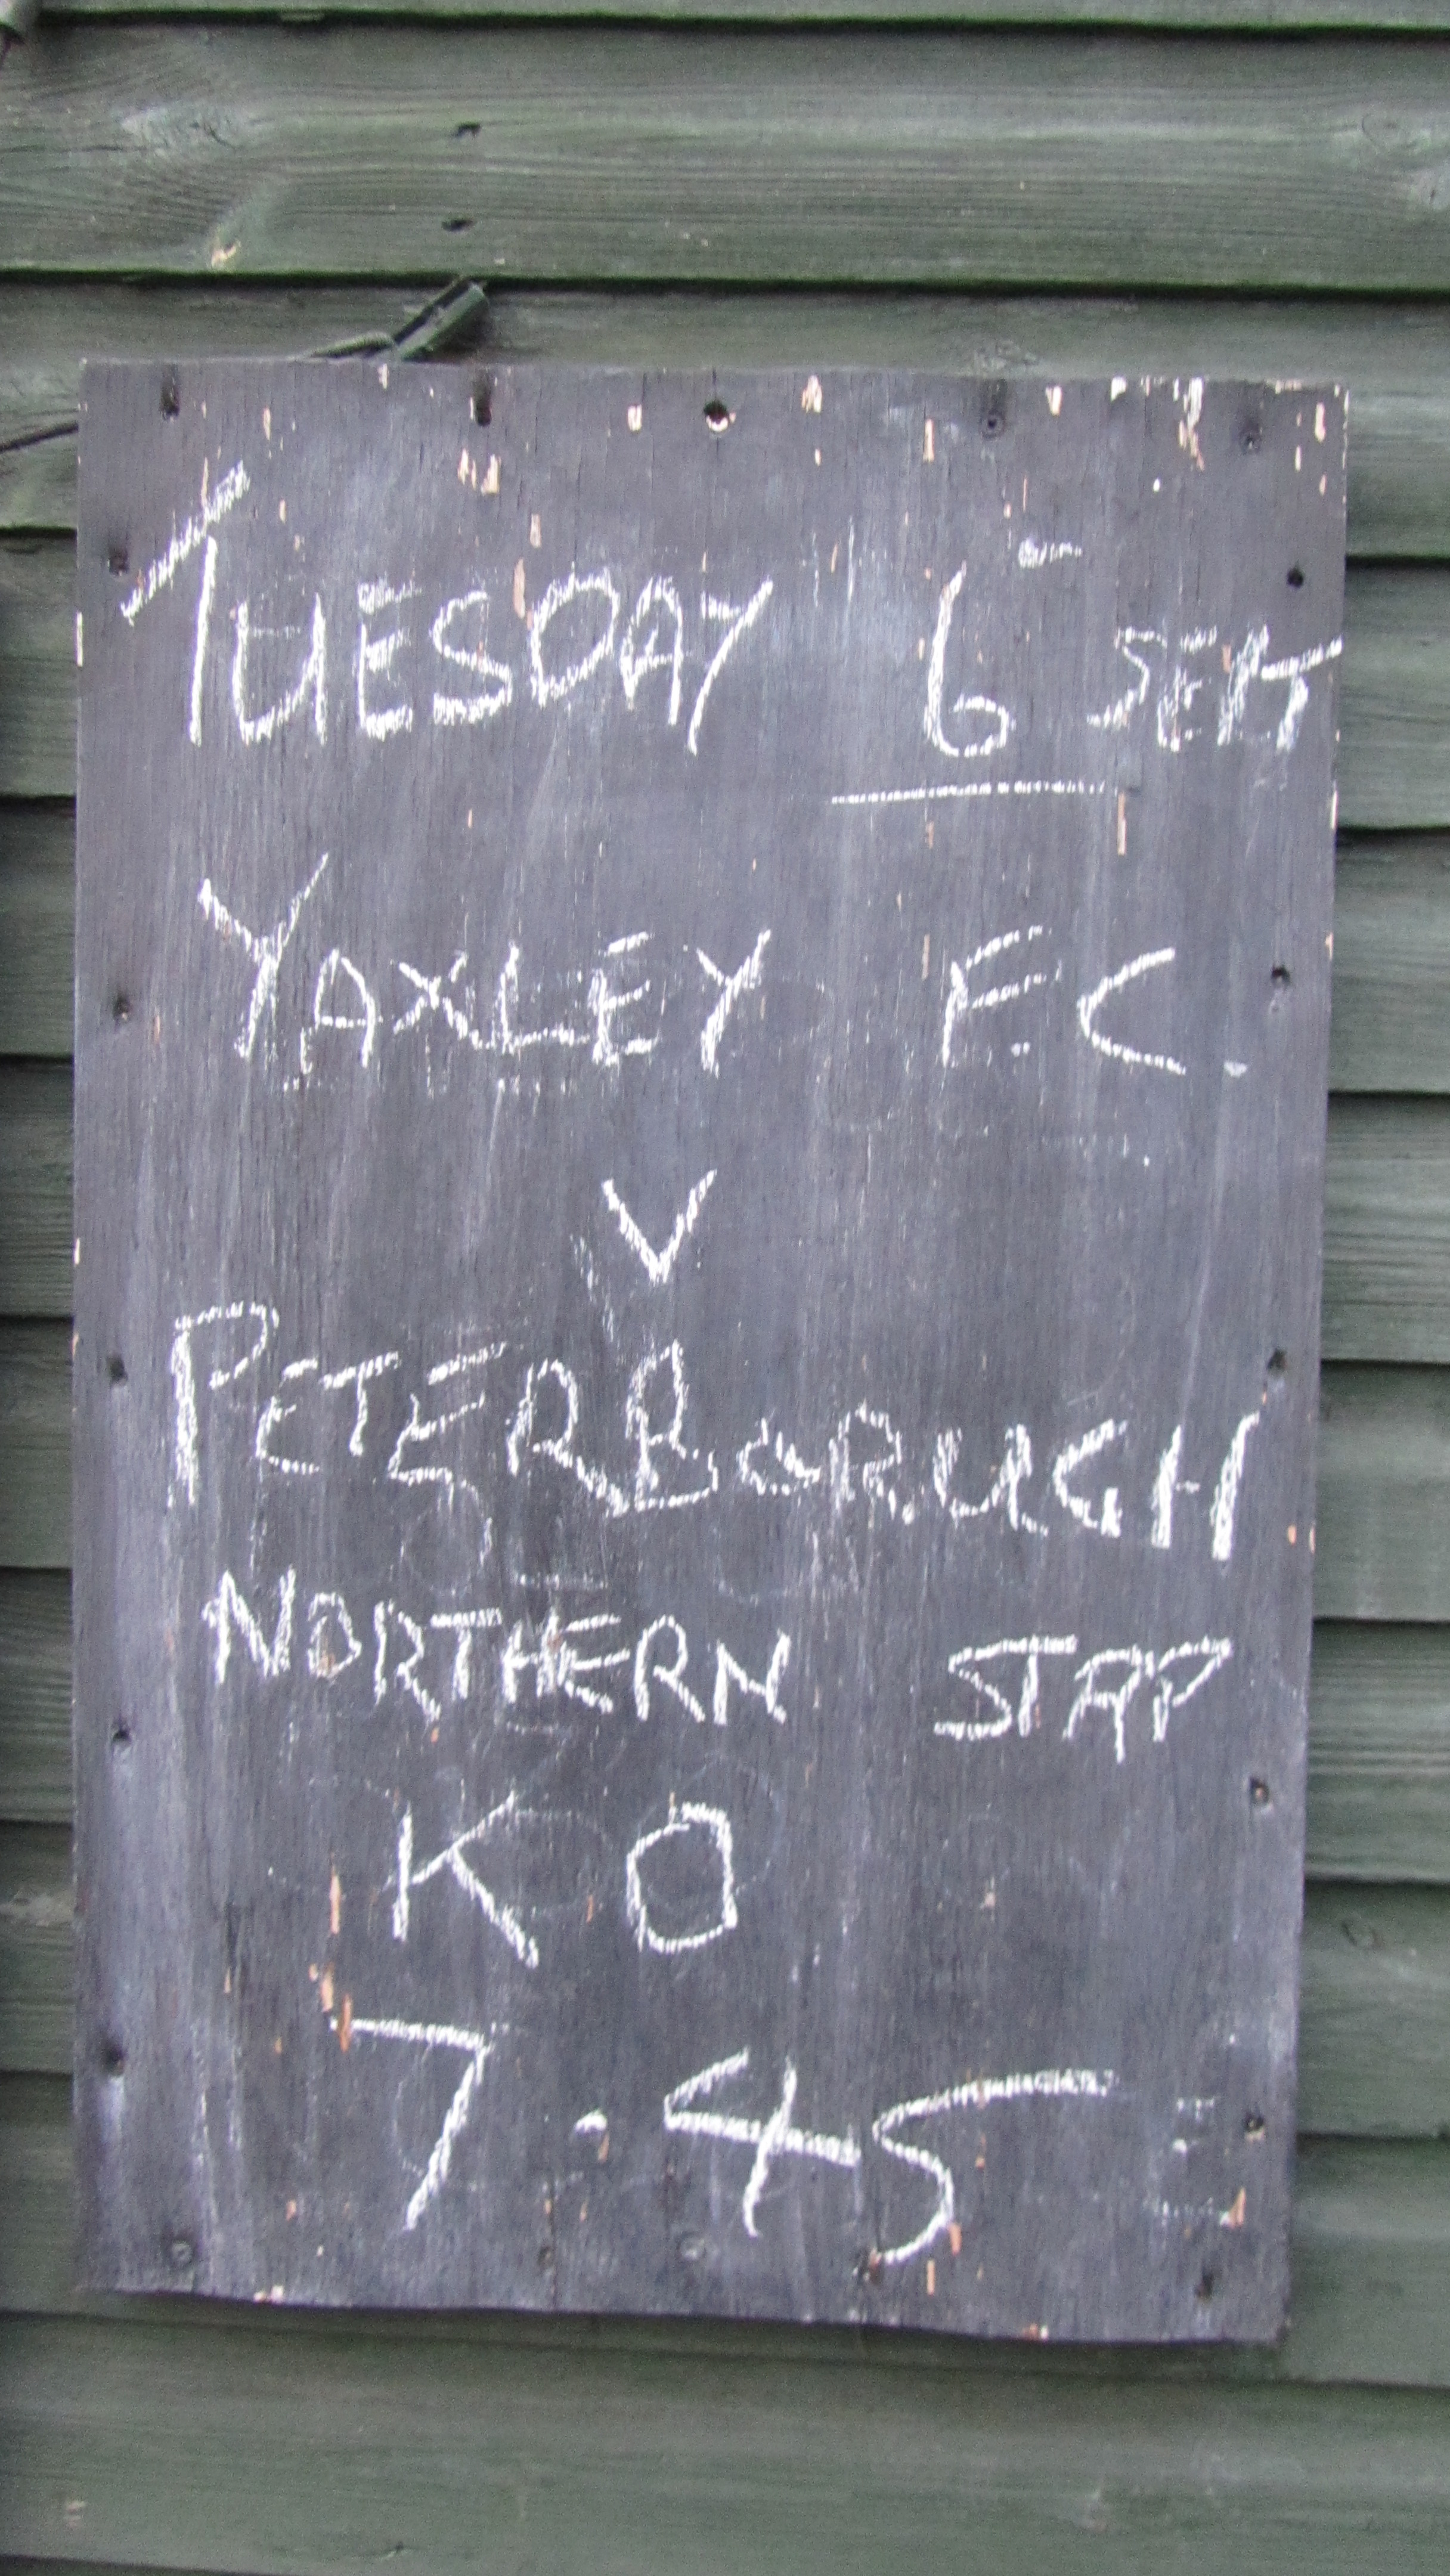 TUESDAY 6 SEPT
YAXLEY F.C.
V
PETERBOROUGH
NORTHERN STAR
K O
7.45